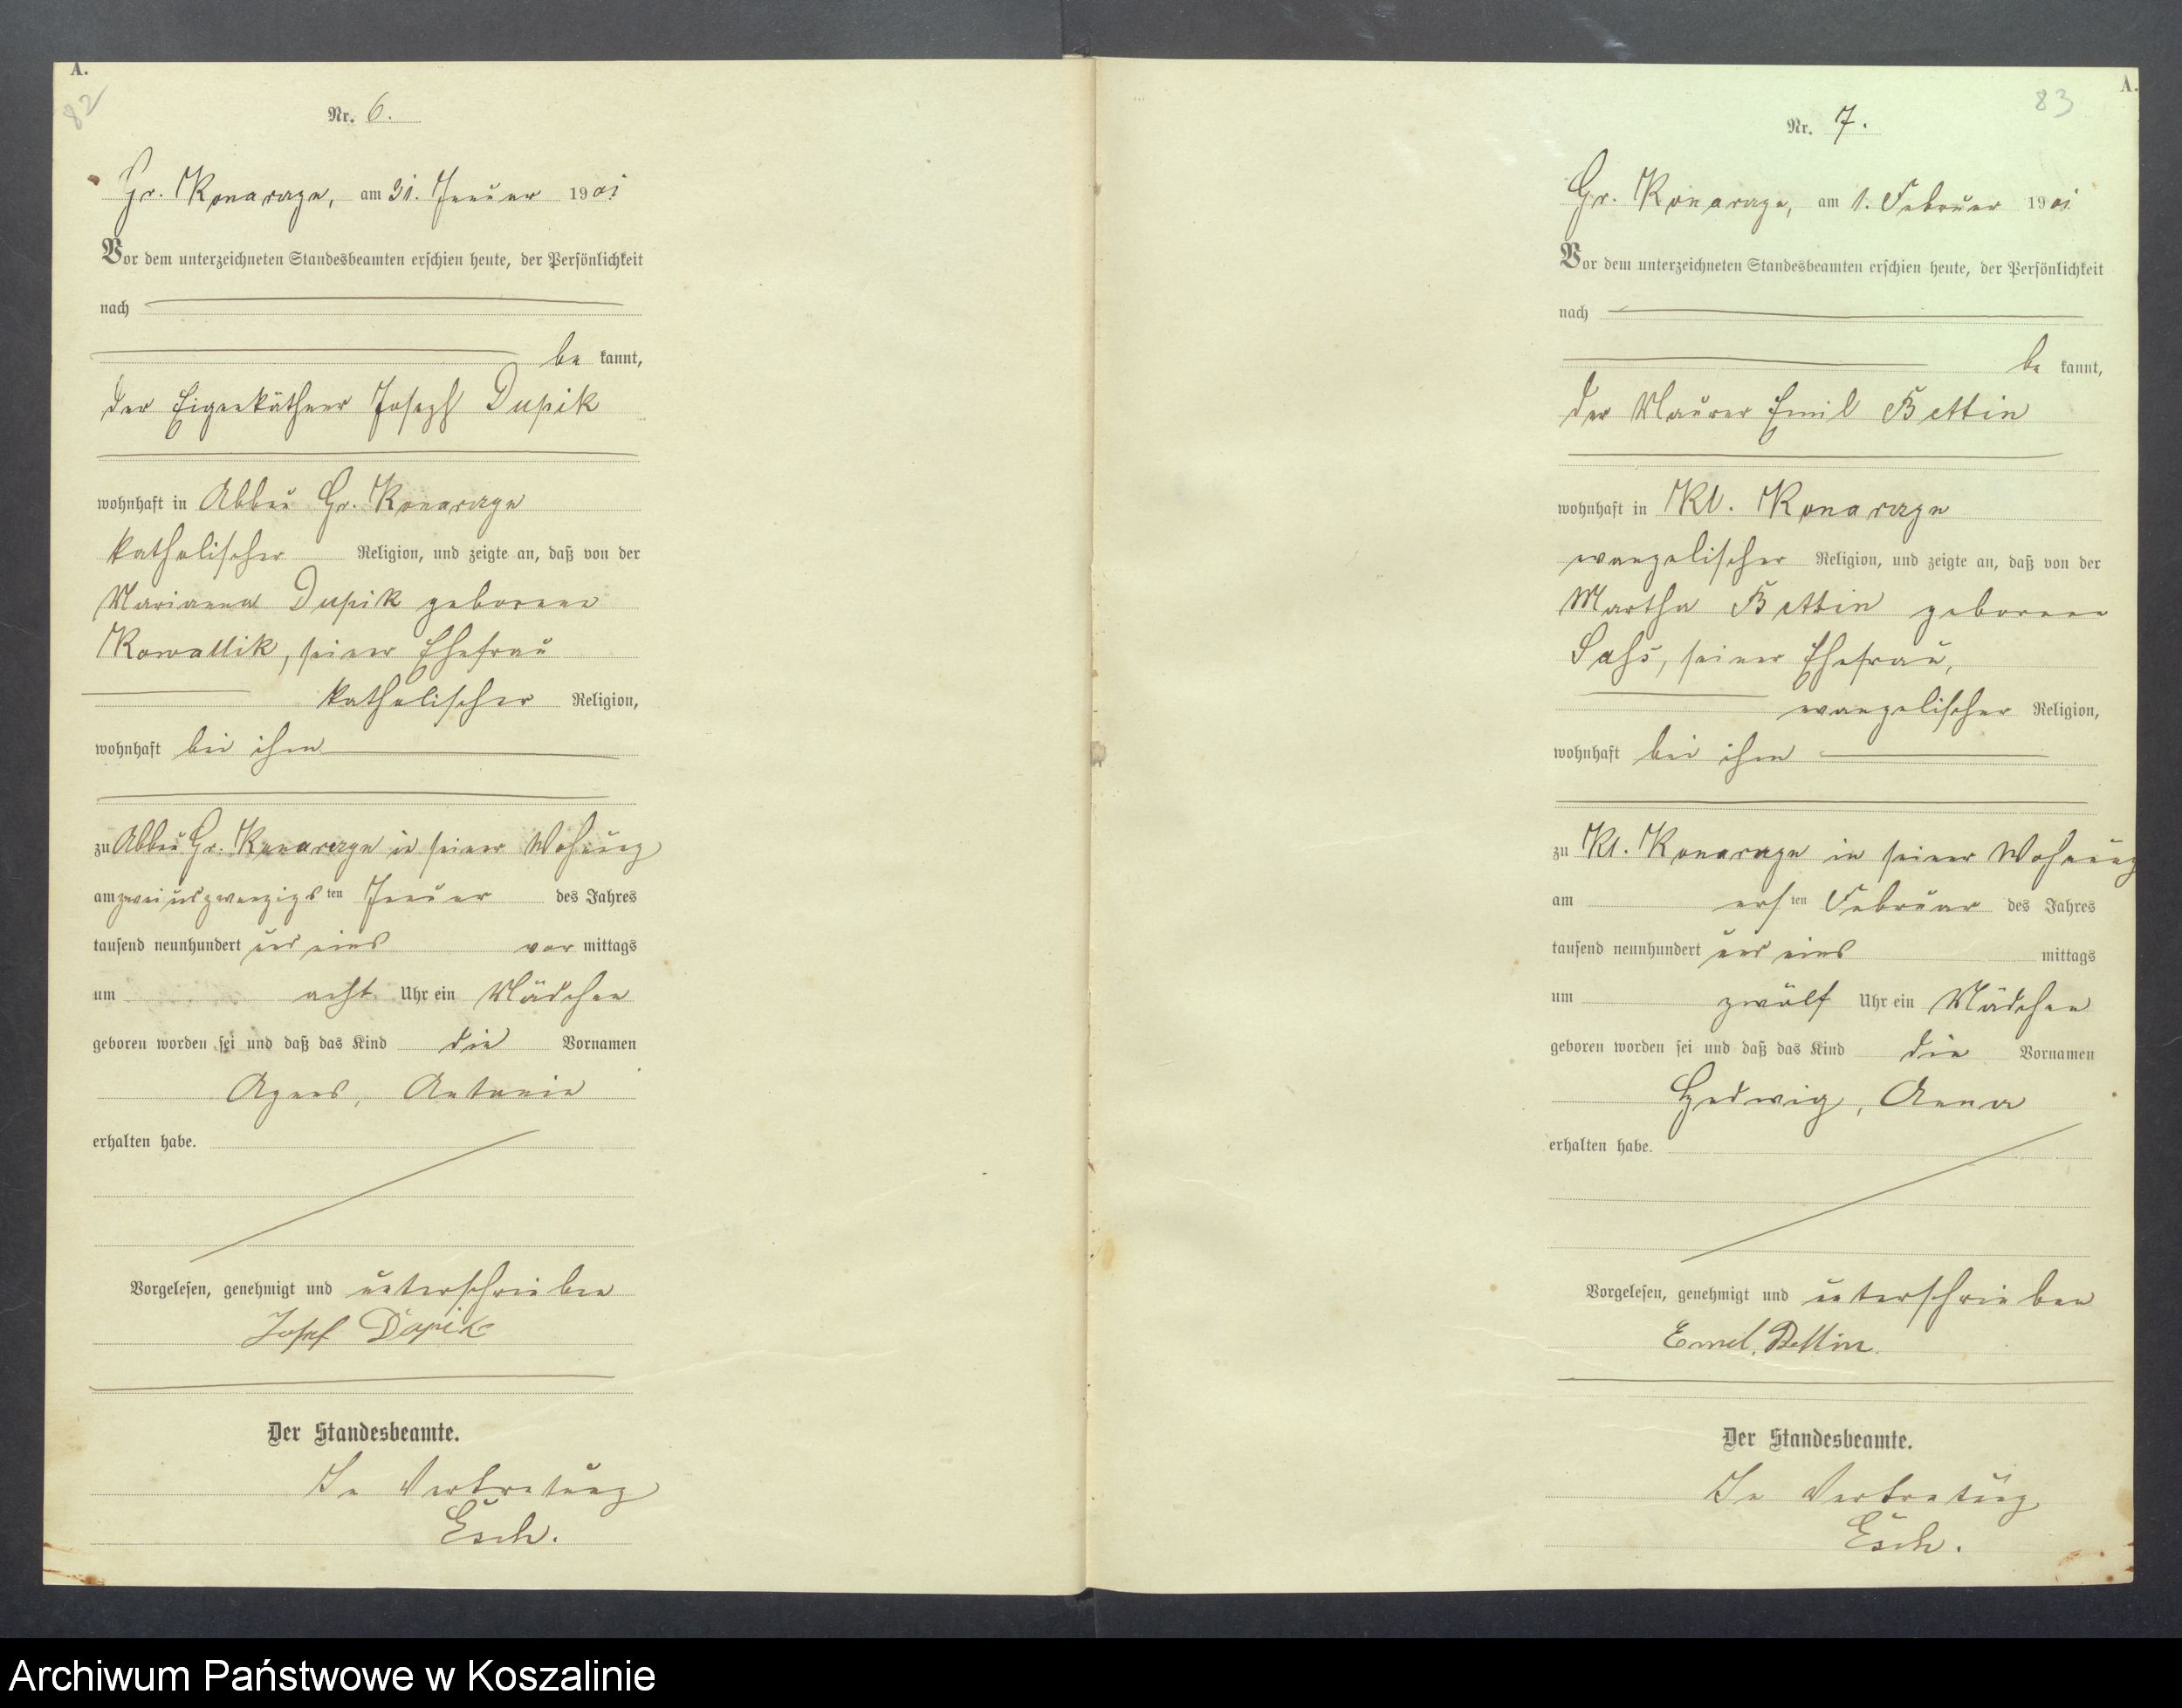 A.
82
Nr. 6.
Gr. Konarczyn, am 31. Januar 1901
Vor dem unterzeichneten Standesbeamten erschien heute, der Persönlichkeit
nach
be kannt,
der Eigenkäthner Joseph Dupik
wohnhaft in Abbau Gr. Konarczyn
katholischer Religion, und zeigte an, daß von der
Marianna Dupik geborene
Kowallik, seiner Ehefrau
katholischer Religion,
wohnhaft bei ihm
zu Abbau Gr. Konarczyn in seiner Wohnung
am zwei und zwanzigsten Januar des Jahres
tausend neunhundert und eins vor mittags
um acht Uhr ein Mädchen
geboren worden sei und daß das Kind die Vornamen
Agnes, Antonie
erhalten habe.
Vorgelesen, genehmigt und unterschrieben
Josef Dupik
Der Standesbeamte.
In Vertretung
Esch.
A.
83
Nr. 7.
Gr. Konarczyn, am 1. Februar 1901
Vor dem unterzeichneten Standesbeamten erschien heute, der Persönlichkeit
nach
be kannt,
der Maurer Emil Bettin
wohnhaft in Kl. Konarczyn
evangelischer Religion, und zeigte an, daß von der
Martha Bettin geborene
Sahs, seiner Ehefrau,
evangelischer Religion,
wohnhaft bei ihm
zu Kl. Konarczyn in seiner Wohnung
am ersten Februar des Jahres
tausend neunhundert und eins mittags
um zwölf Uhr ein Mädchen
geboren worden sei und daß das Kind die Vornamen
Hedwig, Anna
erhalten habe.
Vorgelesen, genehmigt und unterschrieben
Emil Bettin.
Der Standesbeamte.
In Vertretung
Esch.
Archiwum Państwowe w Koszalinie